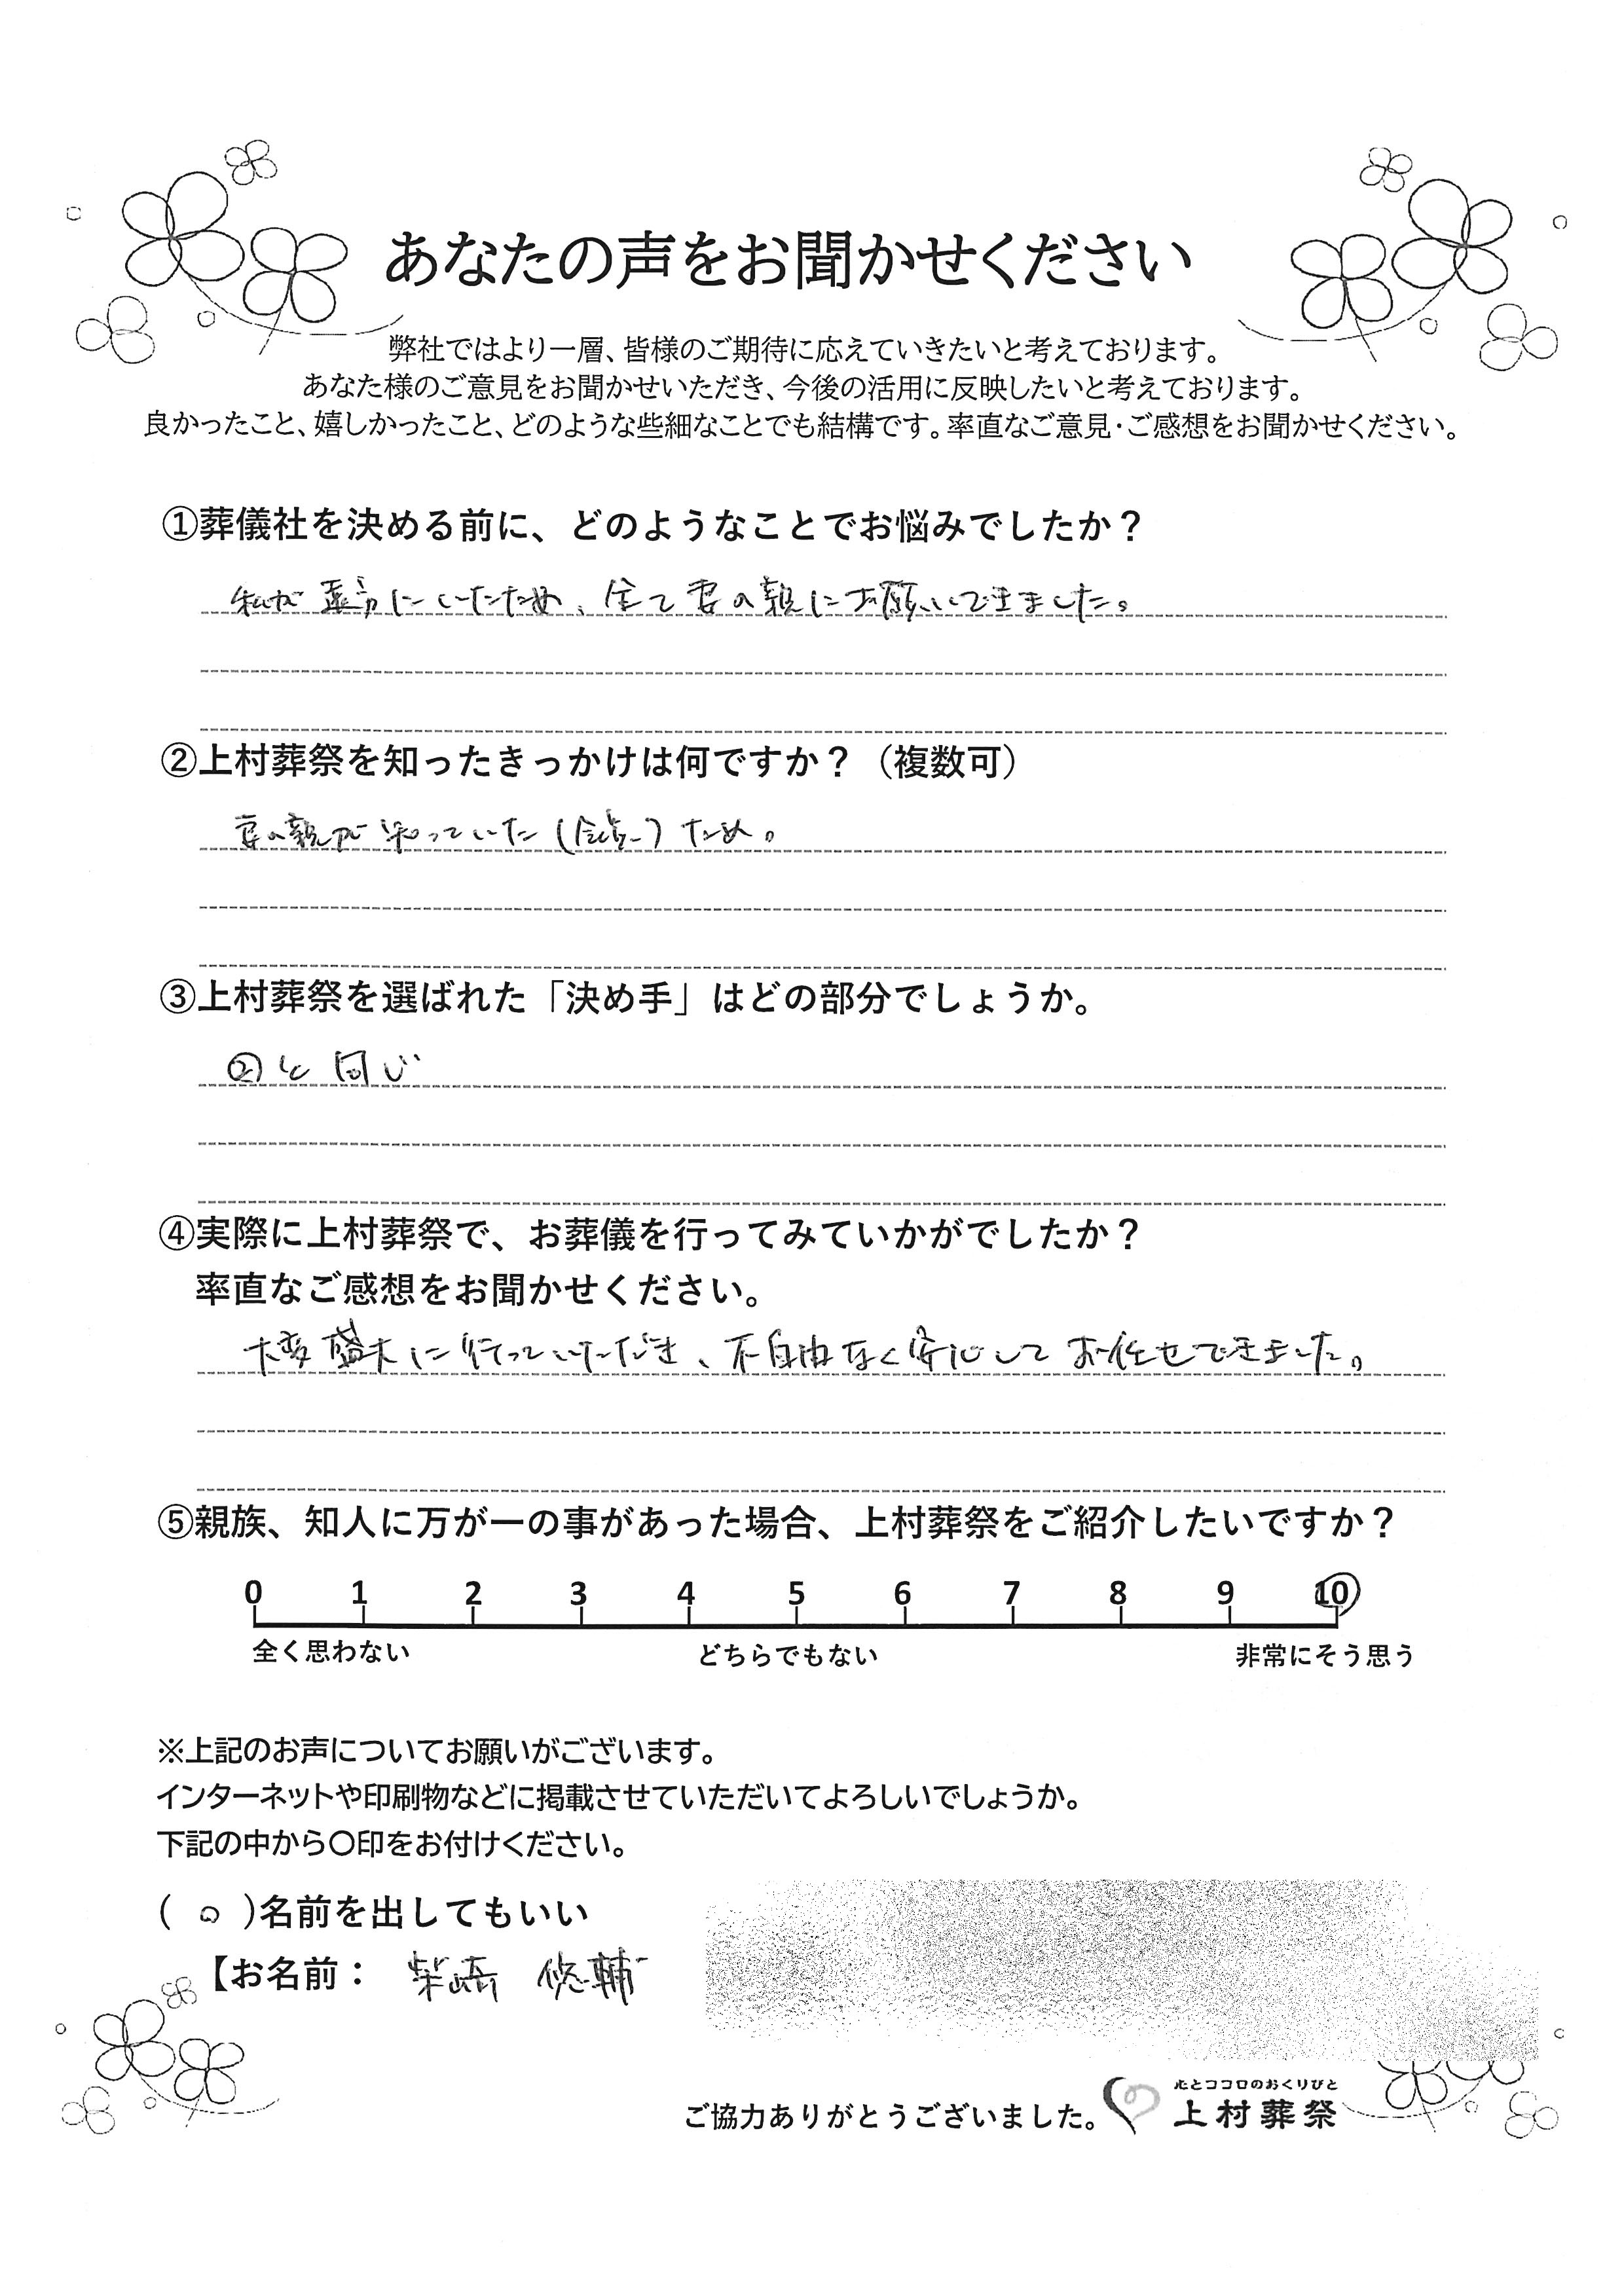 あなたの声をお聞かせください
弊社ではより一層、皆様のご期待に応えていきたいと考えております。
あなた様のご意見をお聞かせいただき、今後の活用に反映したいと考えております。
良かったこと、嬉しかったこと、どのような些細なことでも結構です。率直なご意見・ご感想をお聞かせください。
①葬儀社を決める前に、どのようなことでお悩みでしたか？
私が遠方にいたため、全て妻の親にお願いできました。
②上村葬祭を知ったきっかけは何ですか？（複数可）
妻の親が知っていた( )ため。
③上村葬祭を選ばれた「決め手」はどの部分でしょうか。
②と同じ
④実際に上村葬祭で、お葬儀を行ってみていかがでしたか？
率直なご感想をお聞かせください。
大変盛大に行っていただき、不自由なく安心してお任せできました。
⑤親族、知人に万が一の事があった場合、上村葬祭をご紹介したいですか？
0 1 2 3 4 5 6 7 8 9 10
全く思わない どちらでもない 非常にそう思う
※上記のお声についてお願いがございます。
インターネットや印刷物などに掲載させていただいてよろしいでしょうか。
下記の中から〇印をお付けください。
( ○ )名前を出してもいい
【お名前： 柴崎 悠輔
ご協力ありがとうございました。
心とココロのおくりびと
上村葬祭